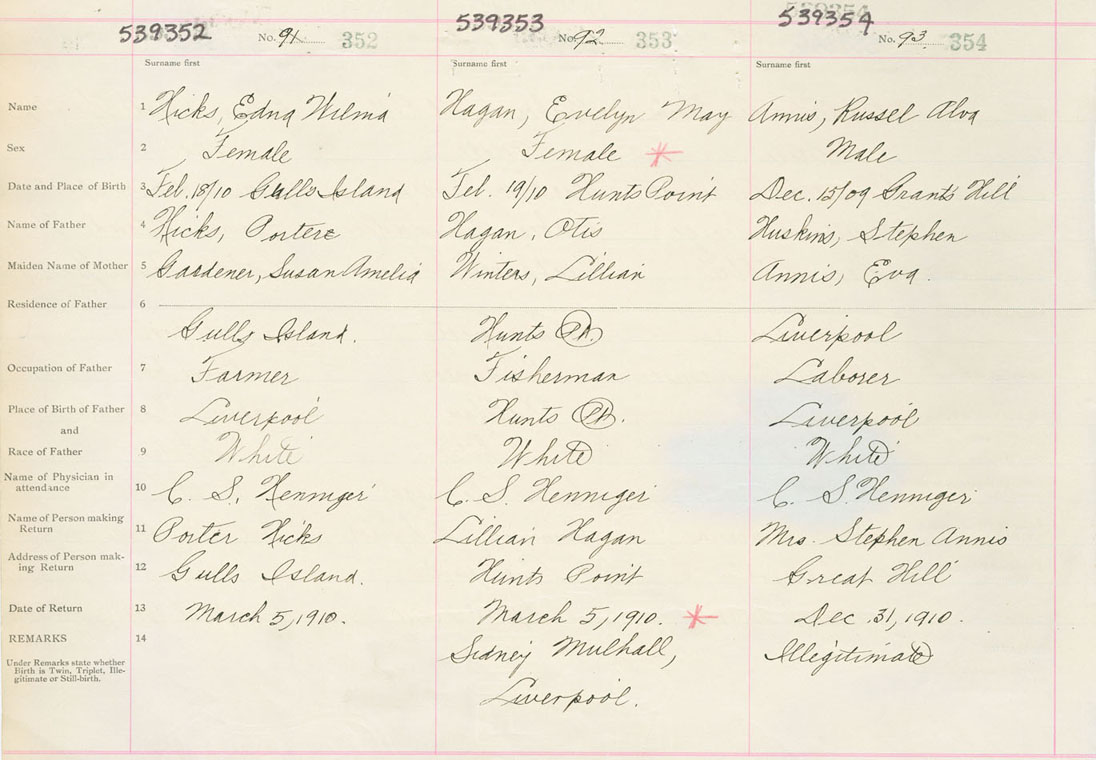 539352 No. 91 352 539353 No. 92 353 539354 No. 93 354
Surname first Surname first Surname first
Name 1 Hicks, Edna Wilma Hagan, Evelyn May Annis, Russel Alva
Sex 2 Female Female Male
Date and Place of Birth 3 Feb. 18/10 Gulls Island Feb. 19/10 Hunts Point Dec. 15/09 Grants Hill
Name of Father 4 Hicks, Porter Hagan, Otis Huskins, Stephen
Maiden Name of Mother 5 Gardener, Susan Amelia Winters, Lillian Annis, Eva.
Residence of Father 6
Gulls Island. Hunts Pt. Liverpool
Occupation of Father 7 Farmer Fisherman Laborer
Place of Birth of Father 8 Liverpool Hunts Pt. Liverpool
and
Race of Father 9 White White White
Name of Physician in
attendance 10 C. S. Henniger C. S. Henniger C. S. Henniger
Name of Person making
Return 11 Porter Hicks Lillian Hagan Mrs. Stephen Annis
Address of Person mak-
ing Return 12 Gulls Island. Hunts Point Great Hill
Date of Return 13 March 5, 1910. March 5, 1910. Dec. 31, 1910.
REMARKS 14 Sidney Mulhall, Illegitimate
Under Remarks state whether
Birth is Twin, Triplet, Ille-
gitimate or Still-birth.
Liverpool.